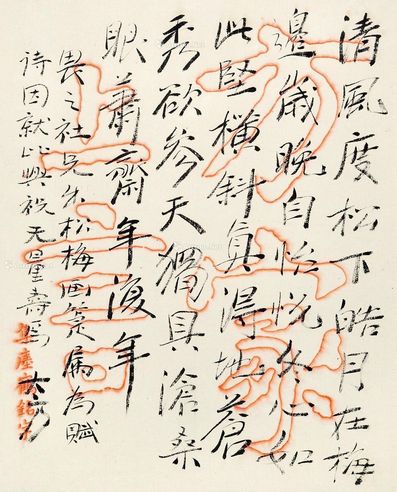 清風度松下皓月在梅
邊歲晚自怡悅冬心如
此堅橫斜真得地蒼
秀欲參天獨具滄桑
眼蕭齋年復年
畏之社兄朱松梅画箋屬為賦
詩因就此興祝无量壽焉